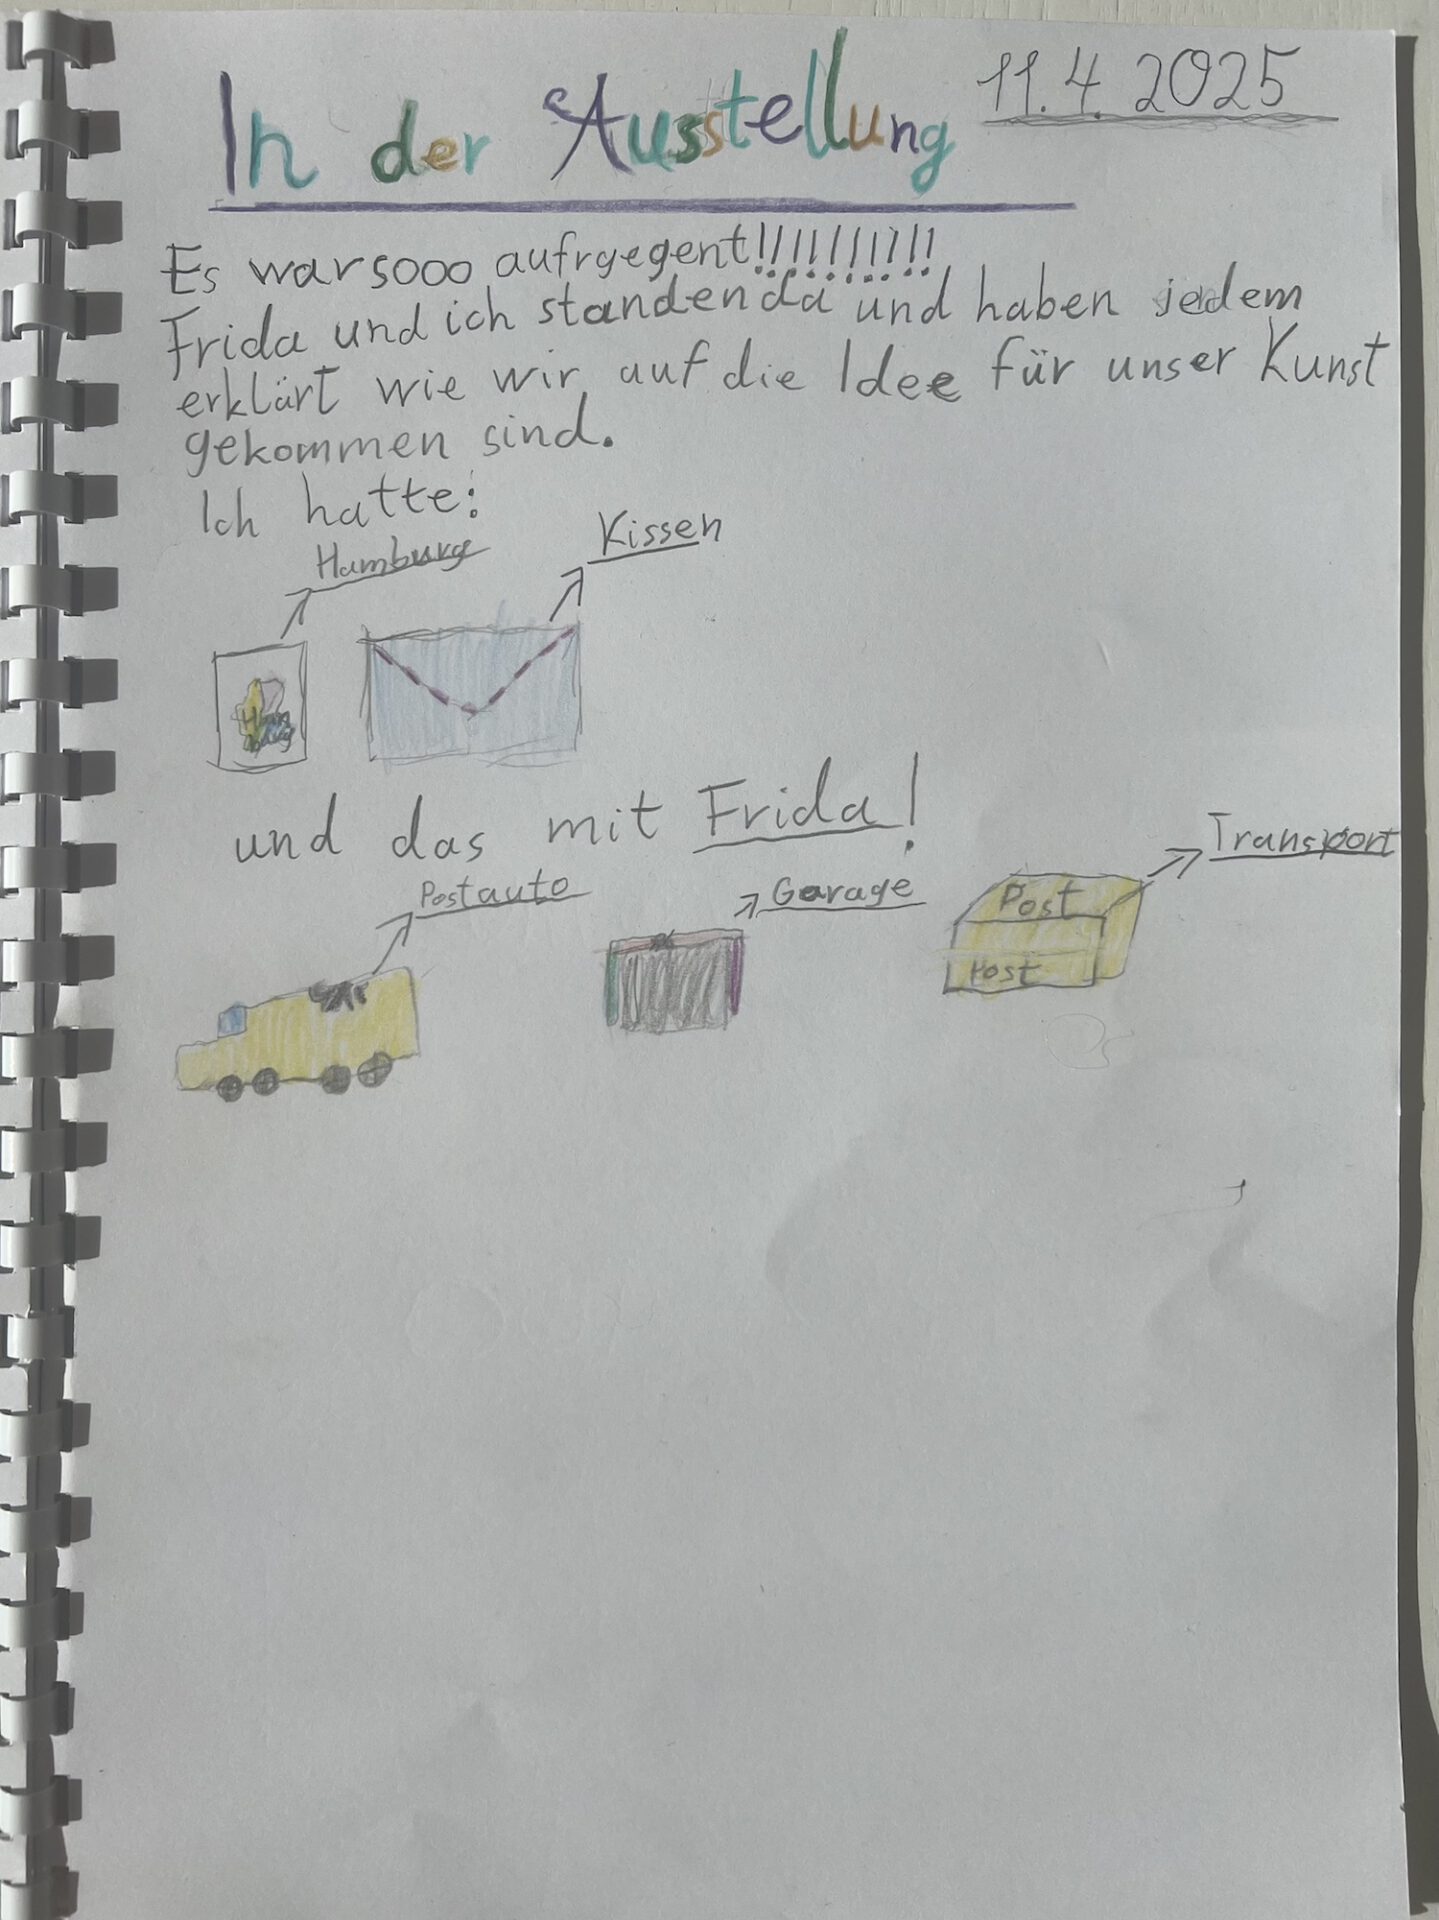 In der Ausstellung
11.4.2025
Es war sooo aufrgegent!!!!!!!!!!!
Frida und ich standen da und haben jedem
erklärt wie wir auf die Idee für unser Kunst
gekommen sind.
Ich hatte:
Hamburg
Kissen
Ham
burg
und das mit Frida!
Postauto
Garage
Transport
Post
Post